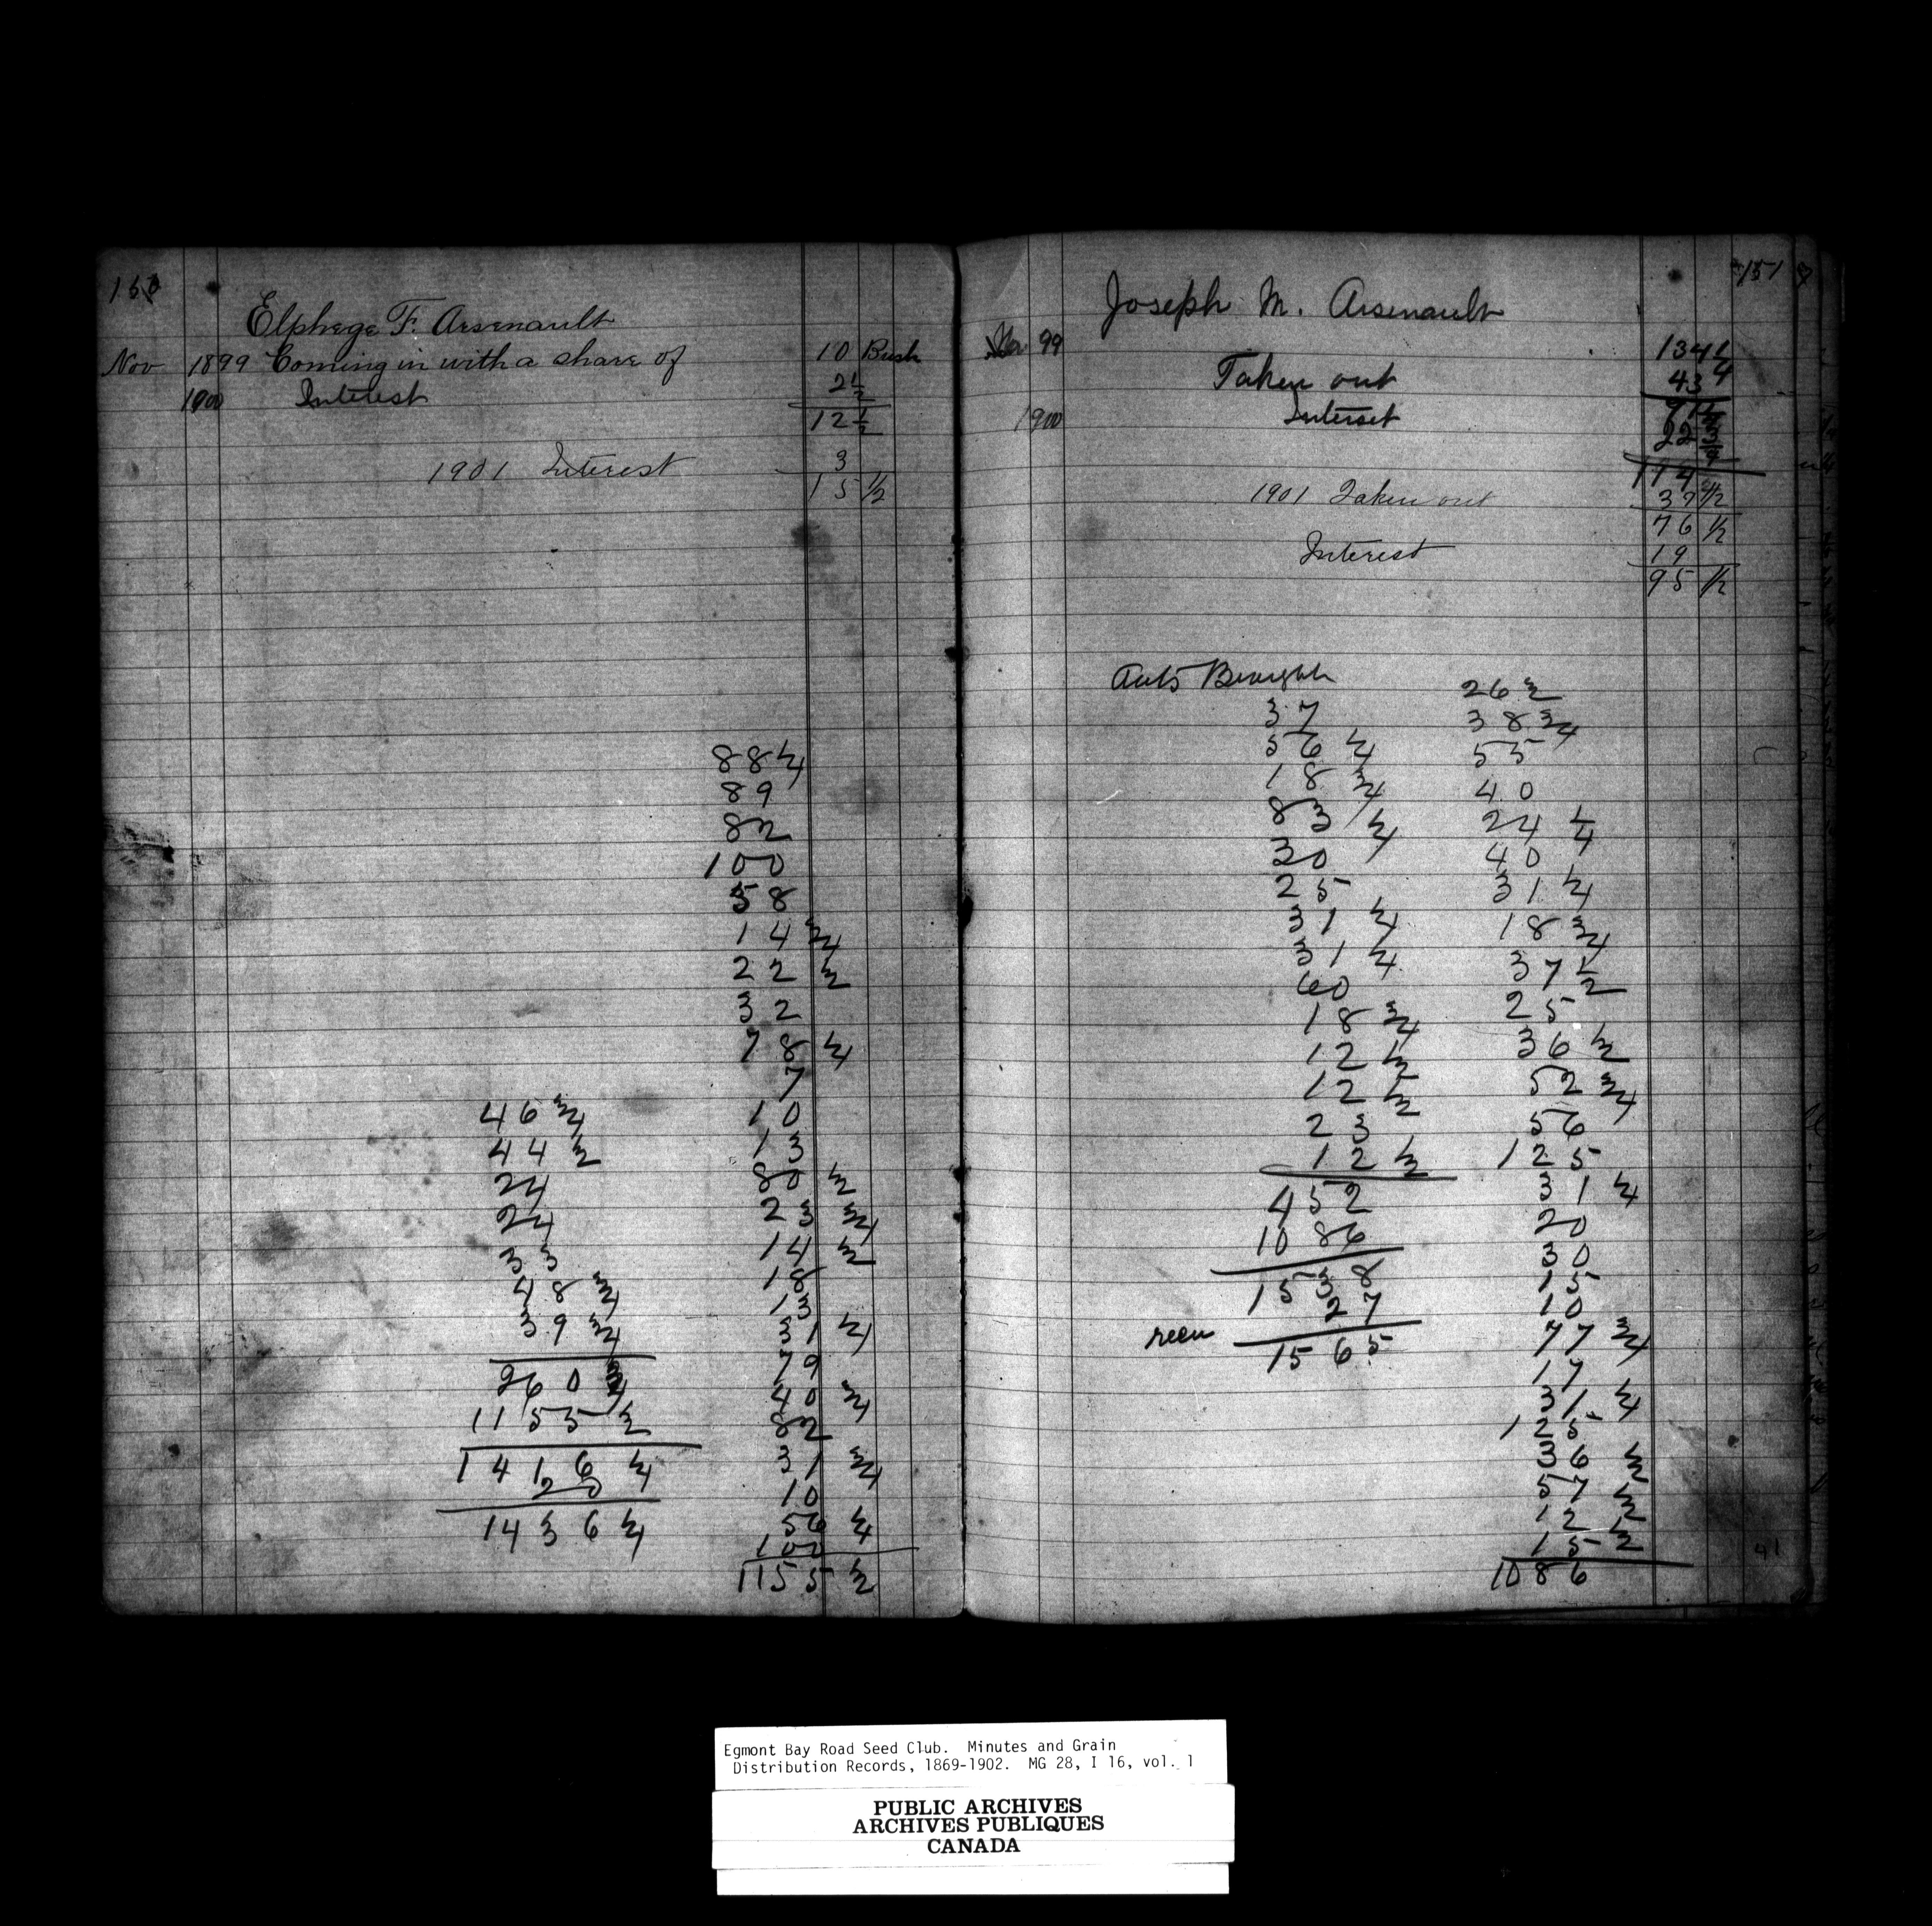 150
Elphege F. Arsenault
Nov 1899 Coming in with a share of 10 Bush
1900 Interest 2½
12½
1901 Interest 3
15 ½
88¼
89
82
100
58
14 ¾
22 ½
32
78 ¼
7
10
13
80 ½
23 ¾
14 ½
18
13
31 ¼
79
40 ¾
82
31 ¾
10
56 ¼
100
1155 ½
46 ¾
44 ½
24
24
33
48 ¾
39 ¾
260 ¾
1155 ½
1416 ¼
20
1436 ¼
151
Joseph M. Arsenault
Nov 99 134 ¼
Taken out 43
1900 Interset 22 ¾
114
1901 Taken out 37 ½
76 ½
Interest 19
95 ½
37
56 ¼
18 ¾
83 ¼
20
25
31 ¼
31 ¼
60
18 ¾
12 ½
12 ½
23
12 ½
452
1086
1538
27
1565
26 ½
38 ¾
55
40
24 ¼
40
31 ¼
18 ¾
37 ½
25
36 ½
52 ¾
56
125
31 ¼
20
30
15
10
77 ¾
17
31 ¼
125
36 ½
57 ½
12 ½
15
1086
41
Egmont Bay Road Seed Club. Minutes and Grain
Distribution Records, 1869-1902. MG 28, I 16, vol. 1
PUBLIC ARCHIVES
ARCHIVES PUBLIQUES
CANADA